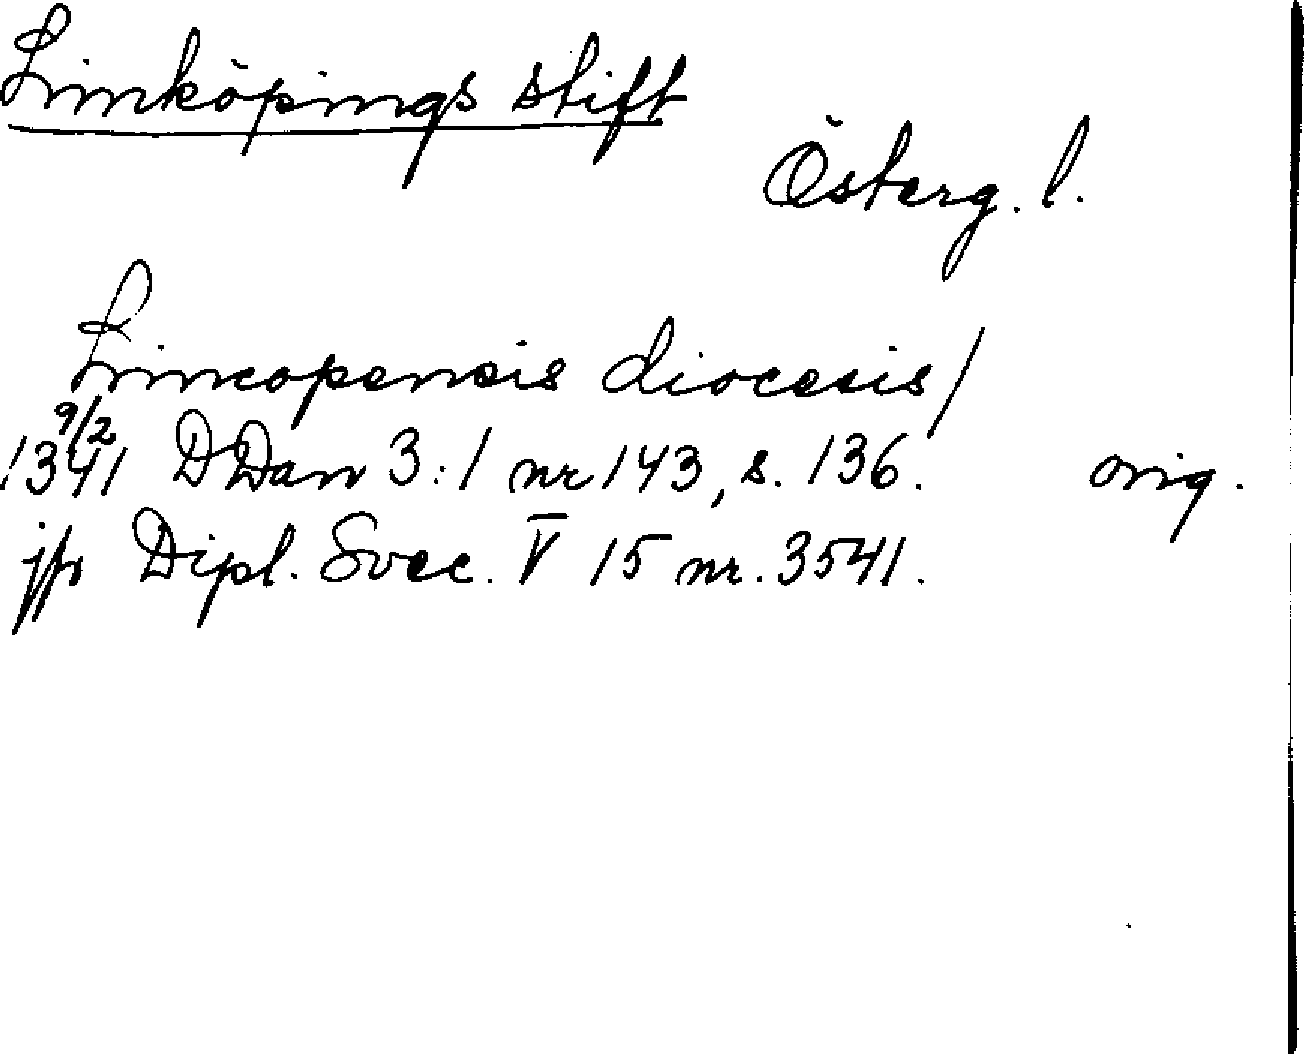 Linköpings stift
Österg. l.
Lincopensis diocesis/
9/2
1341 DDan 3:1 nr 143, s. 136. orig.
jfr Dipl. Svec. V 15 nr. 3541.